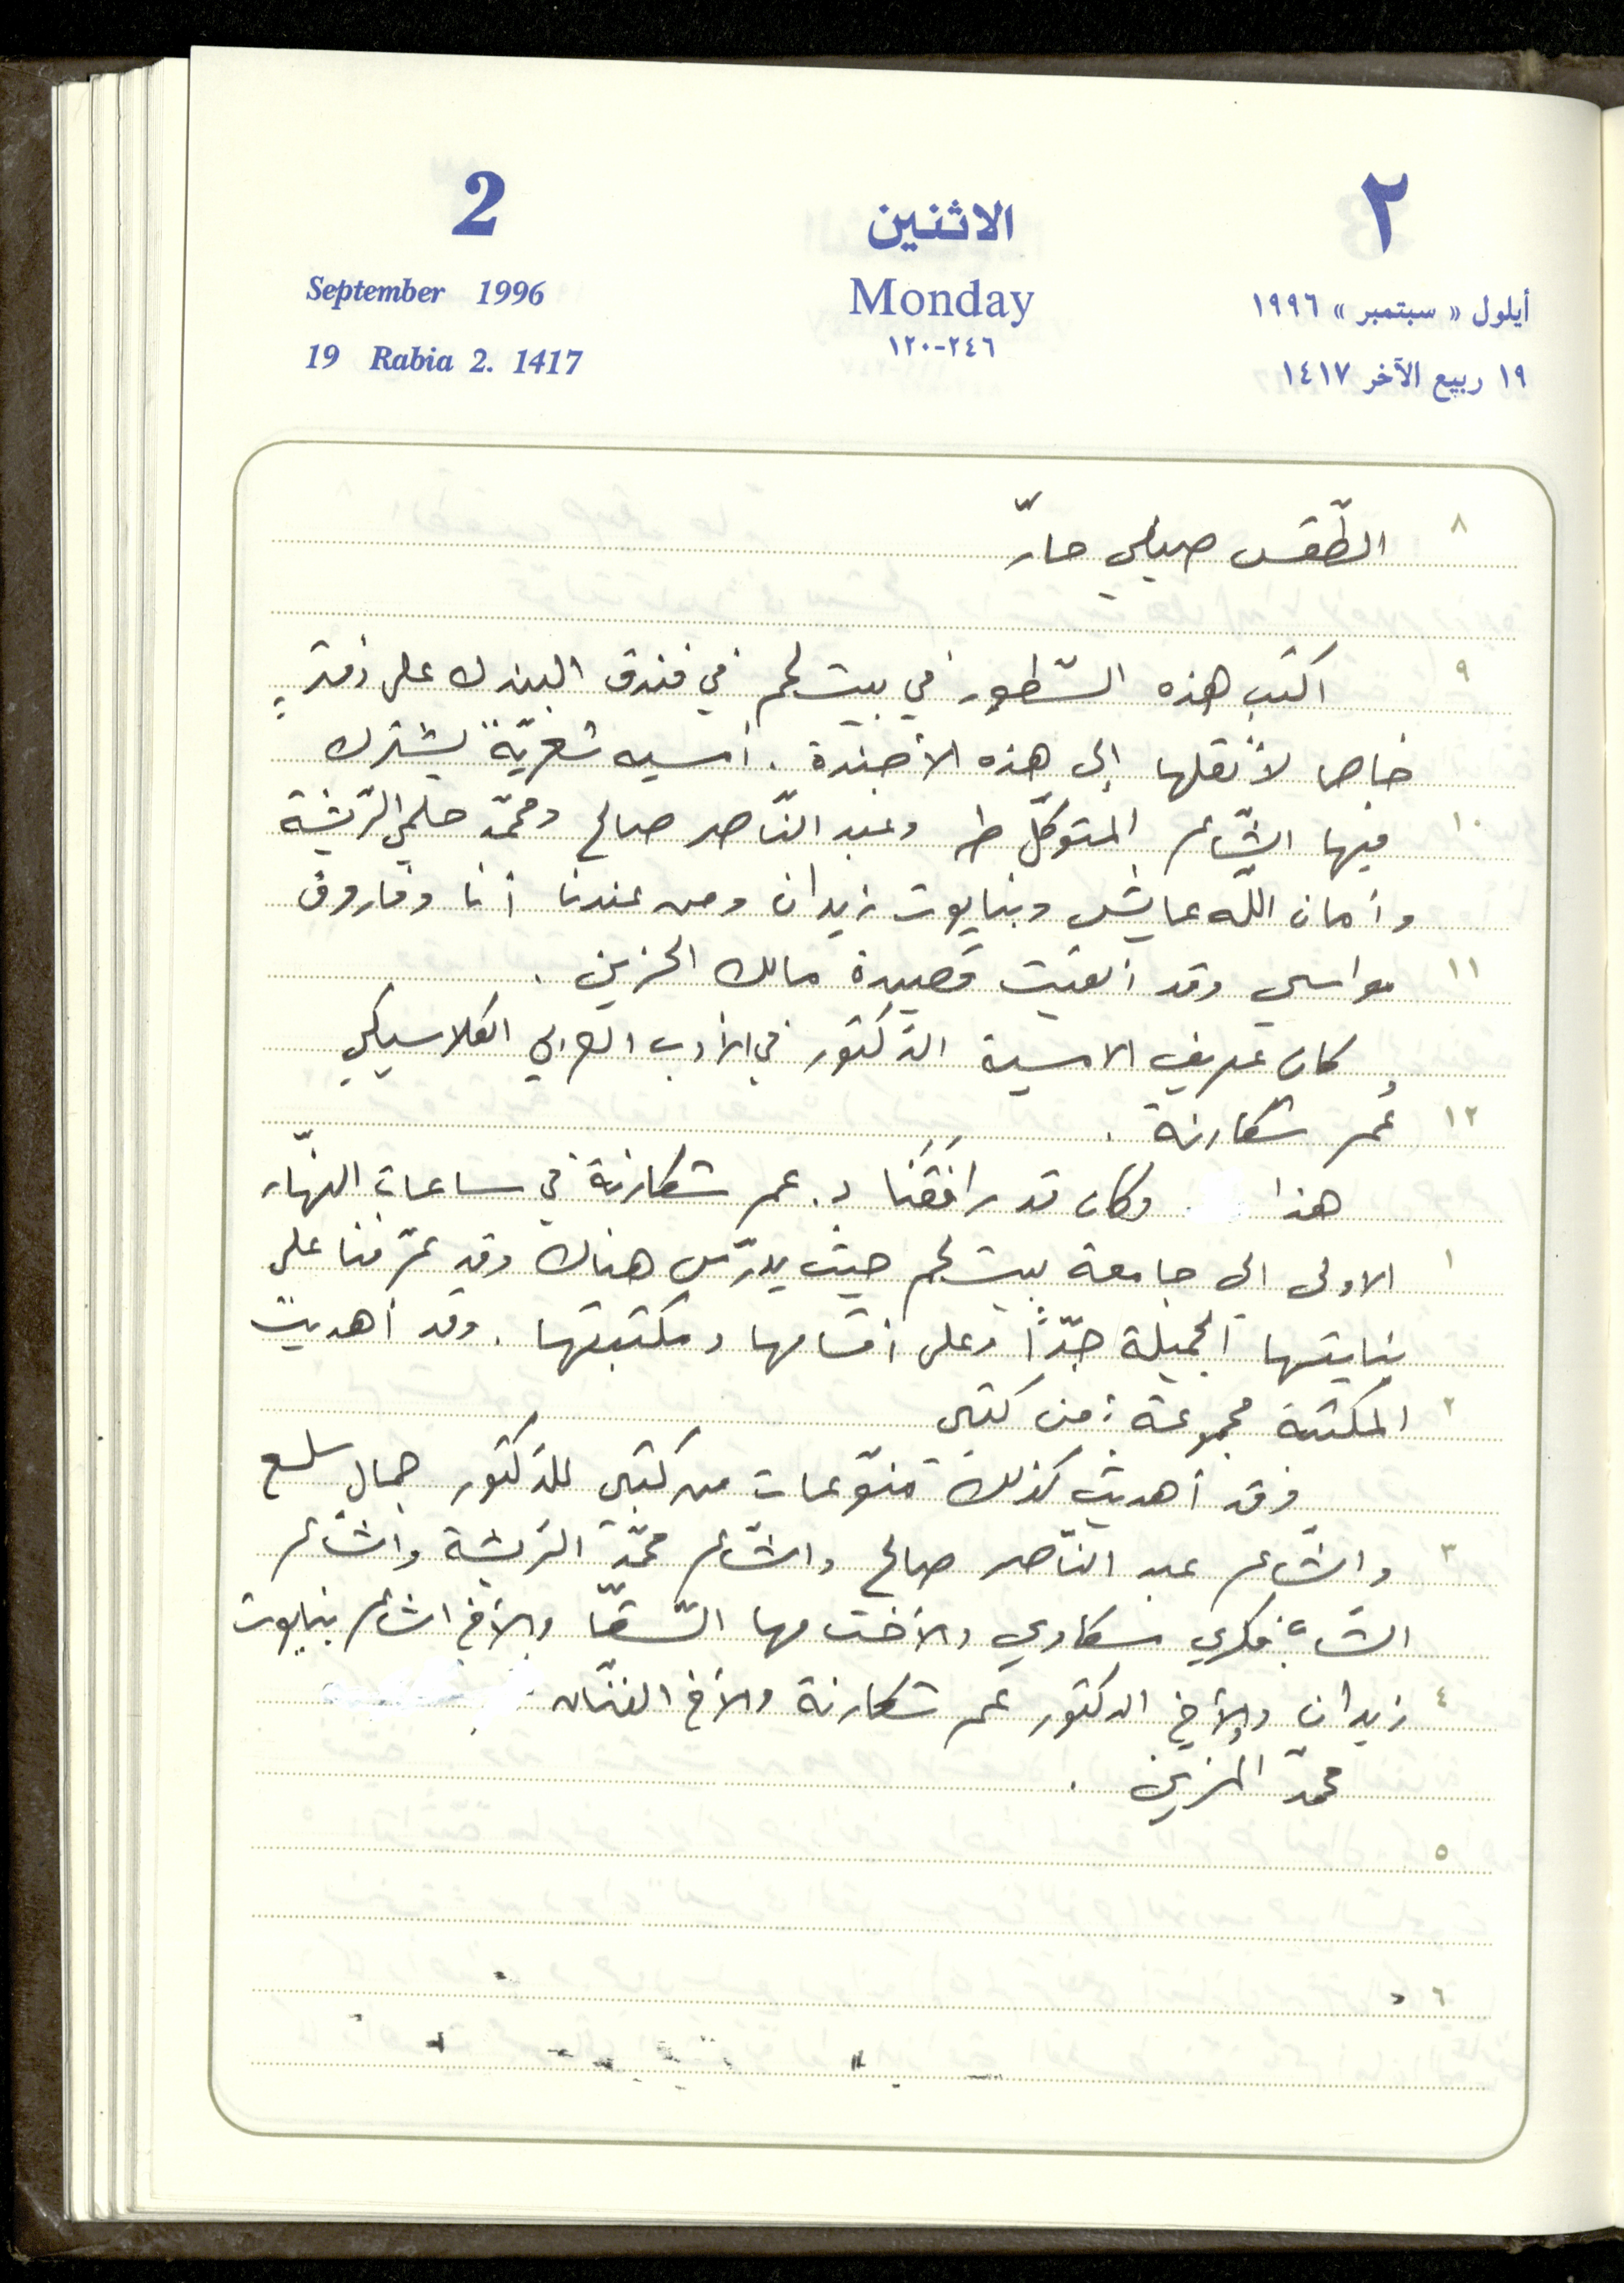 2
الاثنين
٢
September 1996
Monday
أيلول « سبتمبر » ١٩٩٦
19 Rabia 2. 1417
٢٤٦-١٢٠
١٩ ربيع الآخر ١٤١٧
٨ الطّقس صيفي حارّ
٩ اكتب هذه السّطور في بيت لحم في فندق البندك على
خاص لأنقلها إلى هذه الأجندة . أمسيه شعريّة يشترك
١٠ فيها الشّاعر المتوكّل طه وعبد النّاصر صالح ومحمّد حلمي الرّيشة
وأمان اللّه عايش وبنايوت زيدان ومن عندنا أنا وفاروق
١١ مواسي وقد ألقيت قصيدة مالك الحزين .
كان عريف الامسية الدّكتور في الأدب العربي الكلاسيكي
١٢ عُمر شكارنة .
هذا وكان قد رافَقَنا د. عمر شكارنة في ساعات النهّار
١ الاولى الى جامعة بيت لحم حيث يدرّس هناك وقد عرّفنا على
بنايتها الجميلة جدّاً وعلى أقسامها ومكتبتها . وقد أهديت
٢ المكتبة مجموعة من كتبي
وقد أهديت كذلك منوّعات من كتبي للدكتور جمال سلسع
٣ والشّاعر عبد النّاصر صالح والشّاعر محمّد الرّيشة والشّاعر
الشّابّ فكري سكاري والأخت مها السّقّا والأخ الشاعر بنايوت
٤ زيدان والأخ الدكتور عمر شكارنة والأخ الفنّان
محمدّ المزين .
٥
٦